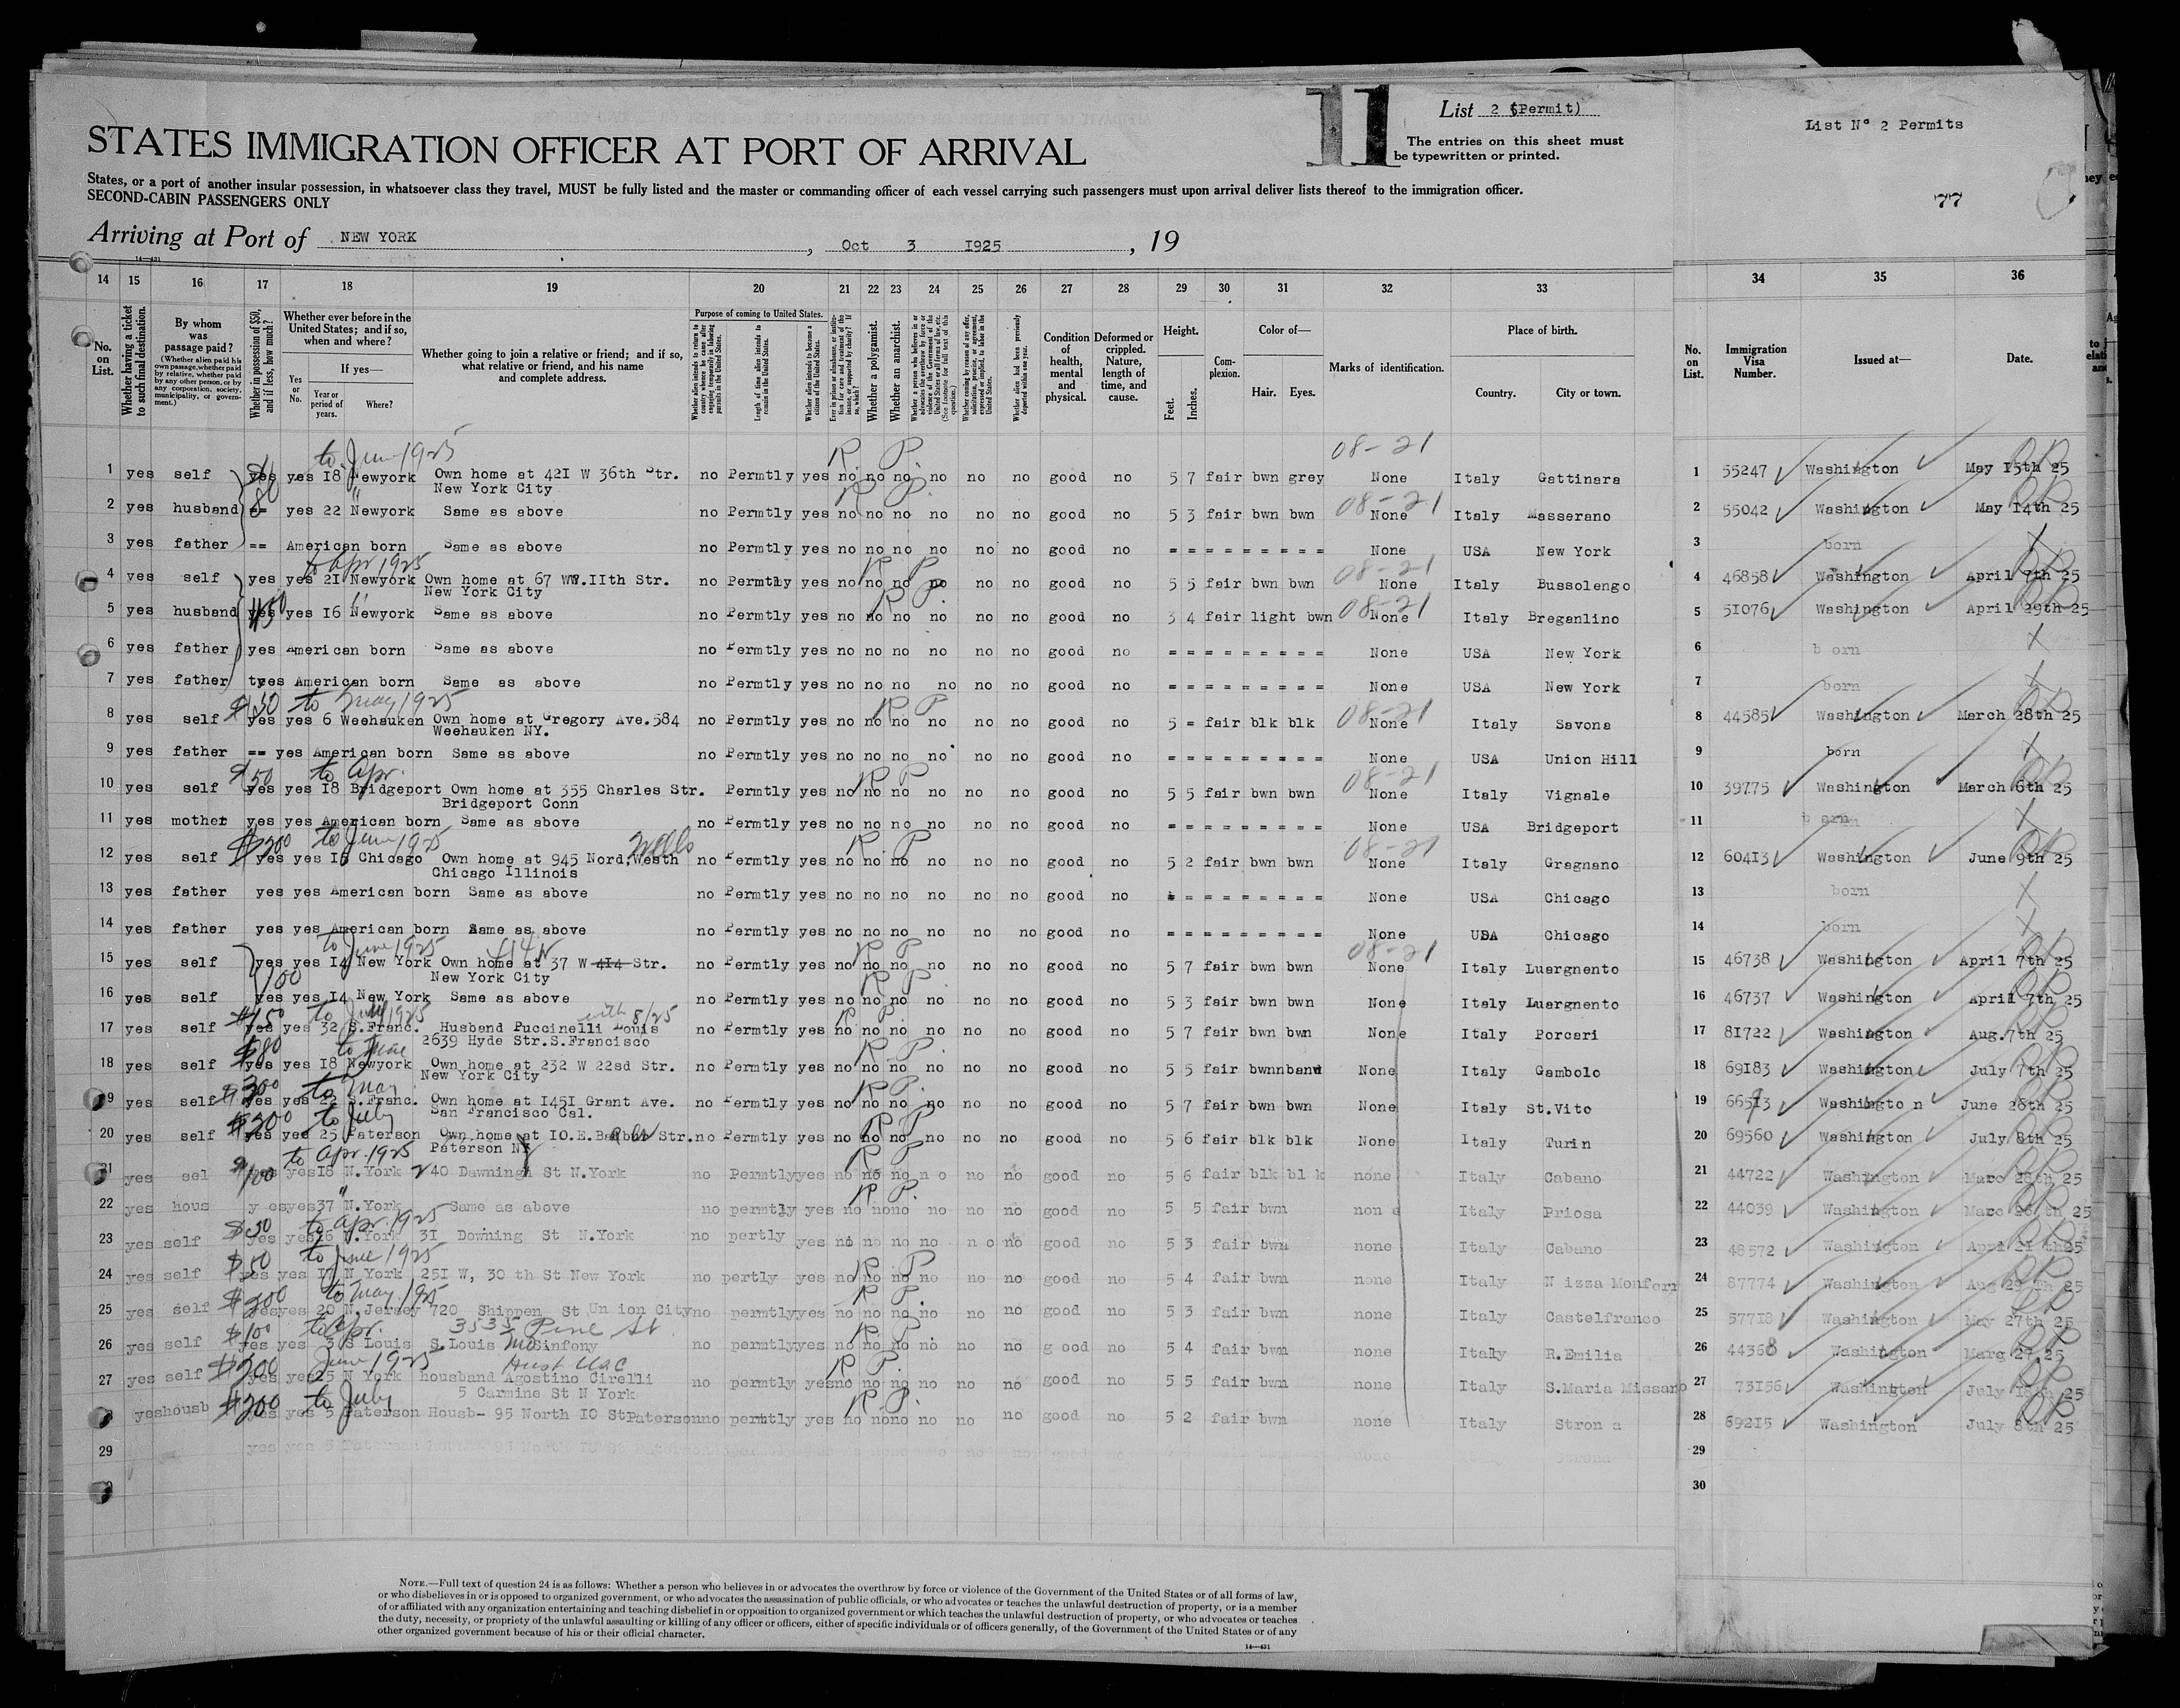 11
List 2 (Permit)
The entries on this sheet must
be typewritten or printed.
List N° 2 Permits
77
STATES IMMIGRATION OFFICER AT PORT OF ARRIVAL
States, or a port of another insular possession, in whatsoever class they travel, MUST be fully listed and the master or commanding officer of each vessel carrying such passengers must upon arrival deliver lists thereof to the immigration officer.
SECOND-CABIN PASSENGERS ONLY
Arriving at Port of NEW YORK , Oct 3 1925 , 19
14—431
14 15 16 17 18 19 20 21 22 23 24 25 26 27 28 29 30 31 32 33 34 35 36
No. on List.
Whether having a ticket to such final destination.
By whom was passage paid?
(Whether alien paid his own passage, whether paid by relative, whether paid by any other person, or by any corporation, society, municipality, or government.)
Whether in possession of $50, and if less, how much?
Whether ever before in the United States; and if so, when and where?
If yes—
Yes or No.
Year or period of years.
Where?
Whether going to join a relative or friend; and if so, what relative or friend, and his name and complete address.
Purpose of coming to United States.
Whether alien intends to return to country whence he came after engaging temporarily in laboring pursuits in the United States.
Length of time alien intends to remain in the United States.
Whether alien intends to become a citizen of the United States.
Whether a polygamist.
Whether an anarchist.
Whether alien had been previously deported within one year.
Condition of health, mental and physical.
Deformed or crippled. Nature, length of time, and cause.
Height.
Feet. Inches.
Complexion.
Color of—
Hair. Eyes.
Marks of identification.
Place of birth.
Country. City or town.
No. on List.
Immigration Visa Number.
Issued at—
Date.
to June 1925 R. P. 08-21
1 yes self yes yes 18 Newyork Own home at 421 W 36th Str. no Permtly yes no no no no no no good no 5 7 fair bwn grey None Italy Gattinara 1 55247 Washington May 15th 25
New York City
2 yes husband == yes 22 Newyork Same as above no Permtly yes no no no no no no good no 5 3 fair bwn bwn 08-21 None Italy Masserano 2 55042 Washington May 14th 25
3 yes father == American born Same as above no Permtly yes no no no no no no good no = = = = = = = = = None USA New York 3 born X
to Apr 1925 R P 08-21
4 yes self yes yes 21 Newyork Own home at 67 W.11th Str. no Permtly yes no no no no no no good no 5 5 fair bwn bwn None Italy Bussolengo 4 46858 Washington April 7th 25
New York City
5 yes husband yes yes 16 Newyork Same as above no Permtly yes no no no no no no good no 3 4 fair light bwn 08-21 None Italy Breganlino 5 51076 Washington April 29th 25
6 yes father yes American born Same as above no Permtly yes no no no no no no good no = = = = = = = = = None USA New York 6 born X
7 yes father yes American born Same as above no Permtly yes no no no no no no good no = = = = = = = = = None USA New York 7 born X
$150 to May 1925 R P
8 yes self yes yes 6 Weehauken Own home at Gregory Ave.584 no Permtly yes no no no no no no good no 5 = fair blk blk 08-21 None Italy Savona 8 44585 Washington March 28th 25
Weehauken NY.
9 yes father == yes American born Same as above no Permtly yes no no no no no no good no = = = = = = = = = None USA Union Hill 9 born X
$50 to Apr. R P 08-21
10 yes self yes yes 18 Bridgeport Own home at 355 Charles Str. Permtly yes no no no no no no good no 5 5 fair bwn bwn None Italy Vignale 10 39775 Washington March 6th 25
Bridgeport Conn
11 yes mother yes yes American born Same as above no Permtly yes no no no no no no good no = = = = = = = = = None USA Bridgeport 11 X
$200 to June 1925 Wells R. P 08-21
12 yes self yes yes Chicago Own home at 945 Nord.Westh no Permtly yes no no no no no no good no 5 2 fair bwn bwn None Italy Gragnano 12 60413 Washington June 9th 25
Chicago Illinois
13 yes father yes yes American born Same as above no Permtly yes no no no no no no good no = = = = = = = = None USA Chicago 13 born X
14 yes father yes yes American born Same as above no Permtly yes no no no no no no good no = = = = = = = = = None USA Chicago 14 born X
to June 1925 R P 08-21
15 yes self yes yes 14 New York Own home at 37 W 414 Str. no Permtly yes no no no no no no good no 5 7 fair bwn bwn None Italy Luargnento 15 46738 Washington April 7th 25
100 New York City R P.
16 yes self yes yes 14 New York Same as above no Permtly yes no no no no no no good no 5 3 fair bwn bwn None Italy Luargnento 16 46737 Washington April 7th 25
$150 to July 1925 with 8/25 R P.
17 yes self yes yes 32 S.Franc. Husband Puccinelli Louis no Permtly yes no no no no no no good no 5 7 fair bwn bwn None Italy Porcari 17 81722 Washington Aug.7th 25
2639 Hyde Str.S.Francisco
$80 R. P.
18 yes self yes yes 18 Newyork Own home at 232 W 22sd Str. no Permtly yes no no no no no no good no 5 5 fair None Italy Gambolo 18 69183 Washington July 7th 25
New York City
$300 to May R P.
19 yes self yes yes S.Franc. Own home at 1451 Grant Ave. no Permtly yes no no no no no no good no 5 7 fair bwn bwn None Italy St.Vito 19 Washington June 26th 25
San Francisco Cal.
$200 to July R P
20 yes self yes yes 25 Paterson Own home at 10.E. Str.no Permtly yes no no no no no no good no 5 6 fair blk blk None Italy Turin 20 69560 Washington July 8th 25
Paterson NY
to Apr. 1925 R P
21 yes sel 100 yes 18 N.York 240 Dawningh St N.York no Permtly yes no no no no no no good no 5 6 fair blk blk none Italy Cabano 21 44722 Washington Marc 28th 25
22 yes hous yes yes 37 N.York Same as above no permtly yes no no no no no no good no 5 5 fair bwn none Italy Priosa 22 44039 Washington Marc 26 th 25
$30 to Apr. 1925
23 yes self yes yes N.York 31 Downing St N.York no pertly yes no no no no no no good no 5 3 fair bwn none Italy Cabano 23 48572 Washington April 21 th 25
$50 to June 1925 R P
24 yes self yes yes 17 N York 251 W, 30 th St New York no pertly yes no no no no no no good no 5 4 fair bwn none Italy Nizza Monferr 24 87774 Washington Aug 29 Th 25
to May. 1925 R P.
25 yes self yes yes 20 N.Jersey 720 Shippen St Union City no permtly yes no no no no no no good no 5 3 fair bwn none Italy Castelfranco 25 57718 Washington May 27th 25
$100 to Apr. 3535 Pine St R P
26 yes self yes yes 3 S Louis S.Louis Mo Sinfony no permtly yes no no no no no no good no 5 4 fair bwn none Italy R.Emilia 26 44368 Washington Marg 27.25
$200 June 1925 R P.
27 yes self yes yes 25 N York housband Agostino Cirelli no permtly yes no no no no no no good no 5 5 fair bwn none Italy S.Maria Missano 27 73156 Washington July 18th 25
5 Carmine St N York
$200 to July R. P.
yes housb yes yes 5 Paterson Housb- 95 North 10 St Paterson no permtly yes no no no no no no good no 5 2 fair bwn none Italy Strona 28 69215 Washington July 8th 25
29 29
30
NOTE.—Full text of question 24 is as follows: Whether a person who believes in or advocates the overthrow by force or violence of the Government of the United States or of all forms of law,
or who disbelieves in or is opposed to organized government, or who advocates the assassination of public officials, or who advocates or teaches the unlawful destruction of property, or is a member
of or affiliated with any organization entertaining and teaching disbelief in or opposition to organized government or which teaches the unlawful destruction of property, or who advocates or teaches
the duty, necessity, or propriety of the unlawful assaulting or killing of any officer or officers, either of specific individuals or of officers generally, of the Government of the United States or of any
other organized government because of his or their official character.
14—431